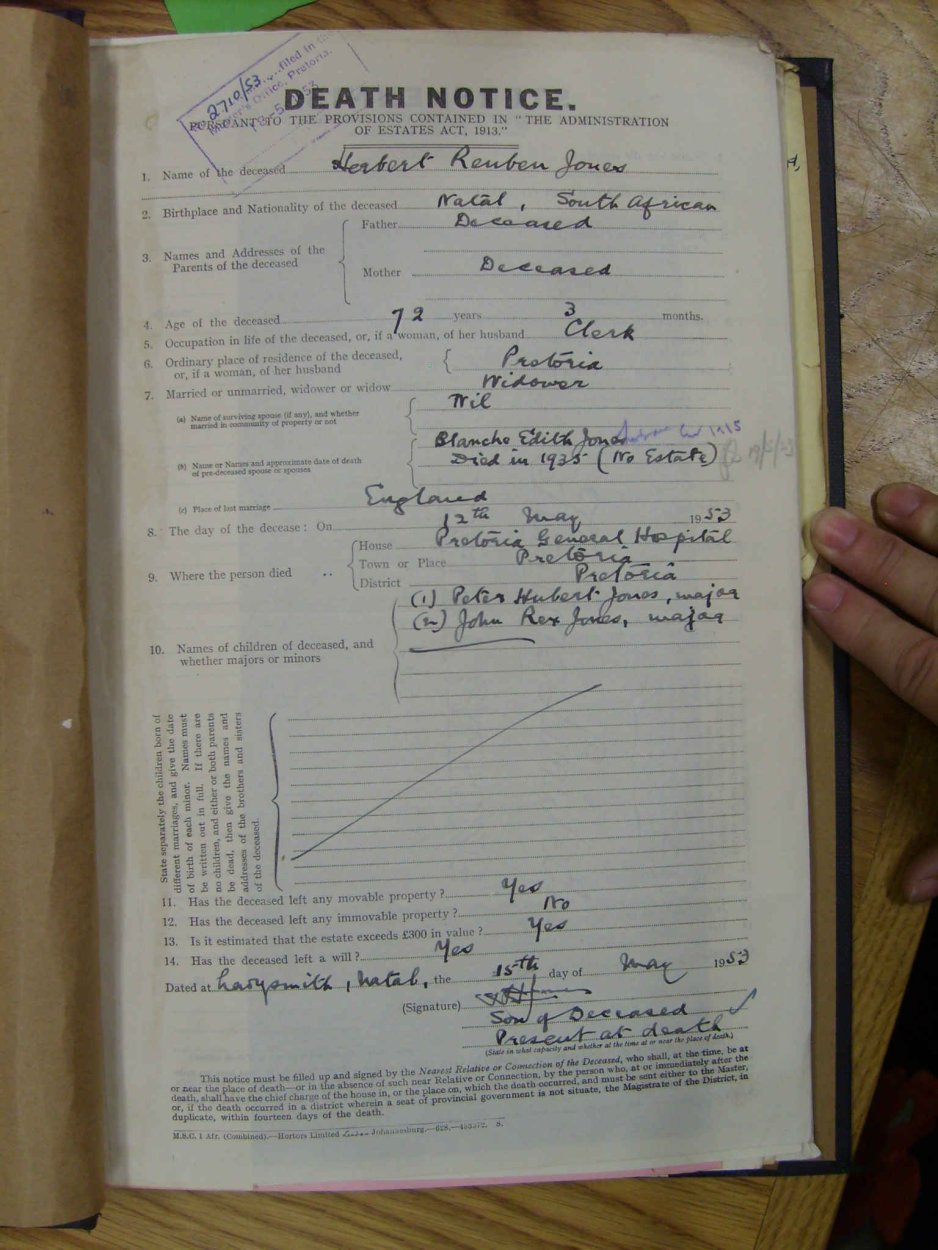 2710/53 ... filed in the
Master's Office, Pretoria.
53
DEATH NOTICE.
PURSUANT TO THE PROVISIONS CONTAINED IN "THE ADMINISTRATION
OF ESTATES ACT, 1913."
1. Name of the deceased Herbert Reuben Jones
2. Birthplace and Nationality of the deceased Natal, South African
3. Names and Addresses of the Parents of the deceased
Father Deceased
Mother Deceased
4. Age of the deceased 72 years 3 months.
5. Occupation in life of the deceased, or, if a woman, of her husband Clerk
6. Ordinary place of residence of the deceased,
or, if a woman, of her husband Pretoria
7. Married or unmarried, widower or widow Widower
(a) Name of surviving spouse (if any), and whether
married in community of property or not Nil
(b) Name or Names and approximate date of death
of pre-deceased spouse or spouses
Blanche Edith Jones
Died in 1935 (No Estate)
(c) Place of last marriage England
8. The day of the decease: On 12th May 1953
9. Where the person died ..
House Pretoria General Hospital
Town or Place Pretoria
District Pretoria
10. Names of children of deceased, and
whether majors or minors
(1) Peter Hubert Jones, major
(2) John Rex Jones, major
State separately the children born of
different marriages, and give the date
of birth of each minor. Names must
be written out in full. If there are
no children, and either or both parents
be dead, then give the names and
addresses of the brothers and sisters
of the deceased.
11. Has the deceased left any movable property? Yes
12. Has the deceased left any immovable property? No
13. Is it estimated that the estate exceeds £300 in value? Yes
14. Has the deceased left a will? Yes
Dated at Ladysmith, Natal, the 15th day of May 1953
(Signature)
Son of Deceased
Present at death
(State in what capacity and whether at the time at or near the place of death.)
This notice must be filled up and signed by the Nearest Relative or Connection of the Deceased, who shall, at the time, be at
or near the place of death—or in the absence of such near Relative or Connection, by the person who, at or immediately after the
death, shall have the chief charge of the house in, or the place on, which the death occurred, and must be sent either to the Master,
or, if the death occurred in a district wherein a seat of provincial government is not situate, the Magistrate of the District, in
duplicate, within fourteen days of the death.
M.S.C. 1 Afr. (Combined).—Hortors Limited Johannesburg.—628.